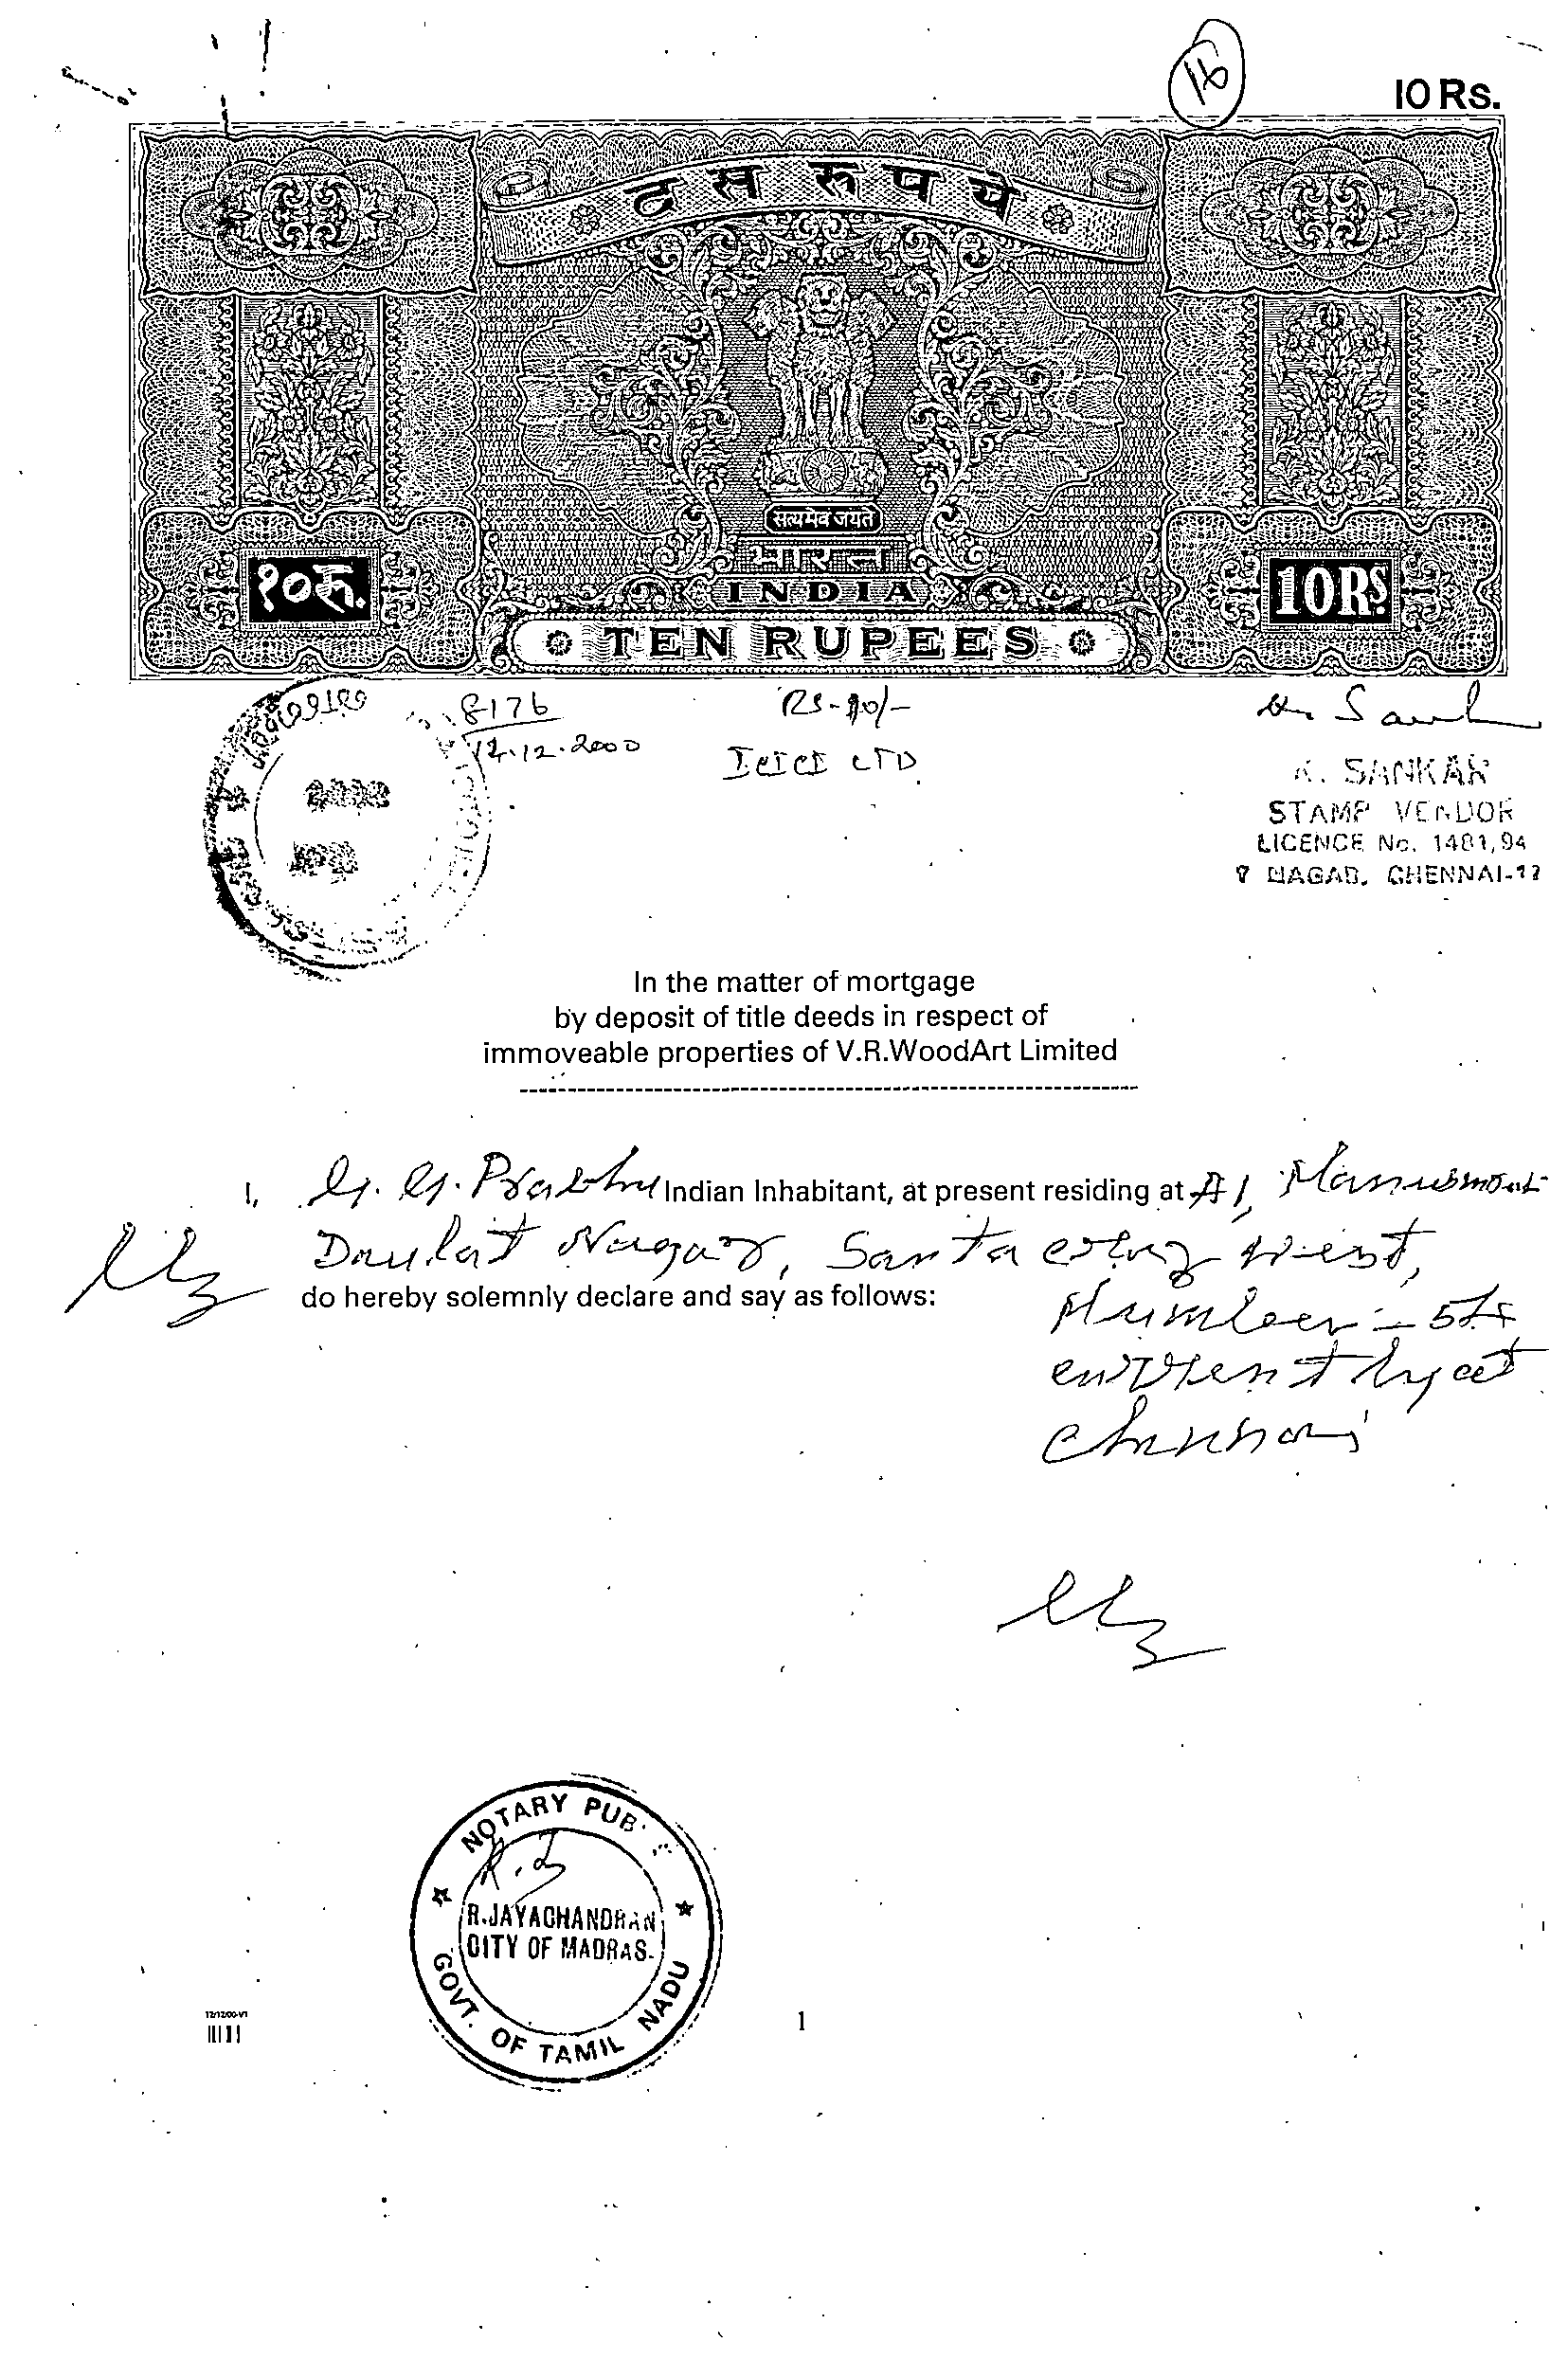 16
10 Rs.
दस रुपये
सत्यमेव जयते
भारत
INDIA
१०रु.
10RS.
TEN RUPEES
8176
12.2000
Rs-10/-
ICICI LTD
K. SANKAR
STAMP VENDOR
LICENCE No. 1481,94
NAGAR, CHENNAI-17
In the matter of mortgage
by deposit of title deeds in respect of
immoveable properties of V.R.WoodArt Limited
I, G. G. Prabhu Indian Inhabitant, at present residing at A1,
Daulat Nagar, Santa Cruz West,
do hereby solemnly declare and say as follows:
Mumbai - 54
currently at
Chennai
NOTARY PUB
R.JAYACHANDRAN
CITY OF MADRAS.
GOVT. OF TAMIL NADU
12/12/00-V1
1